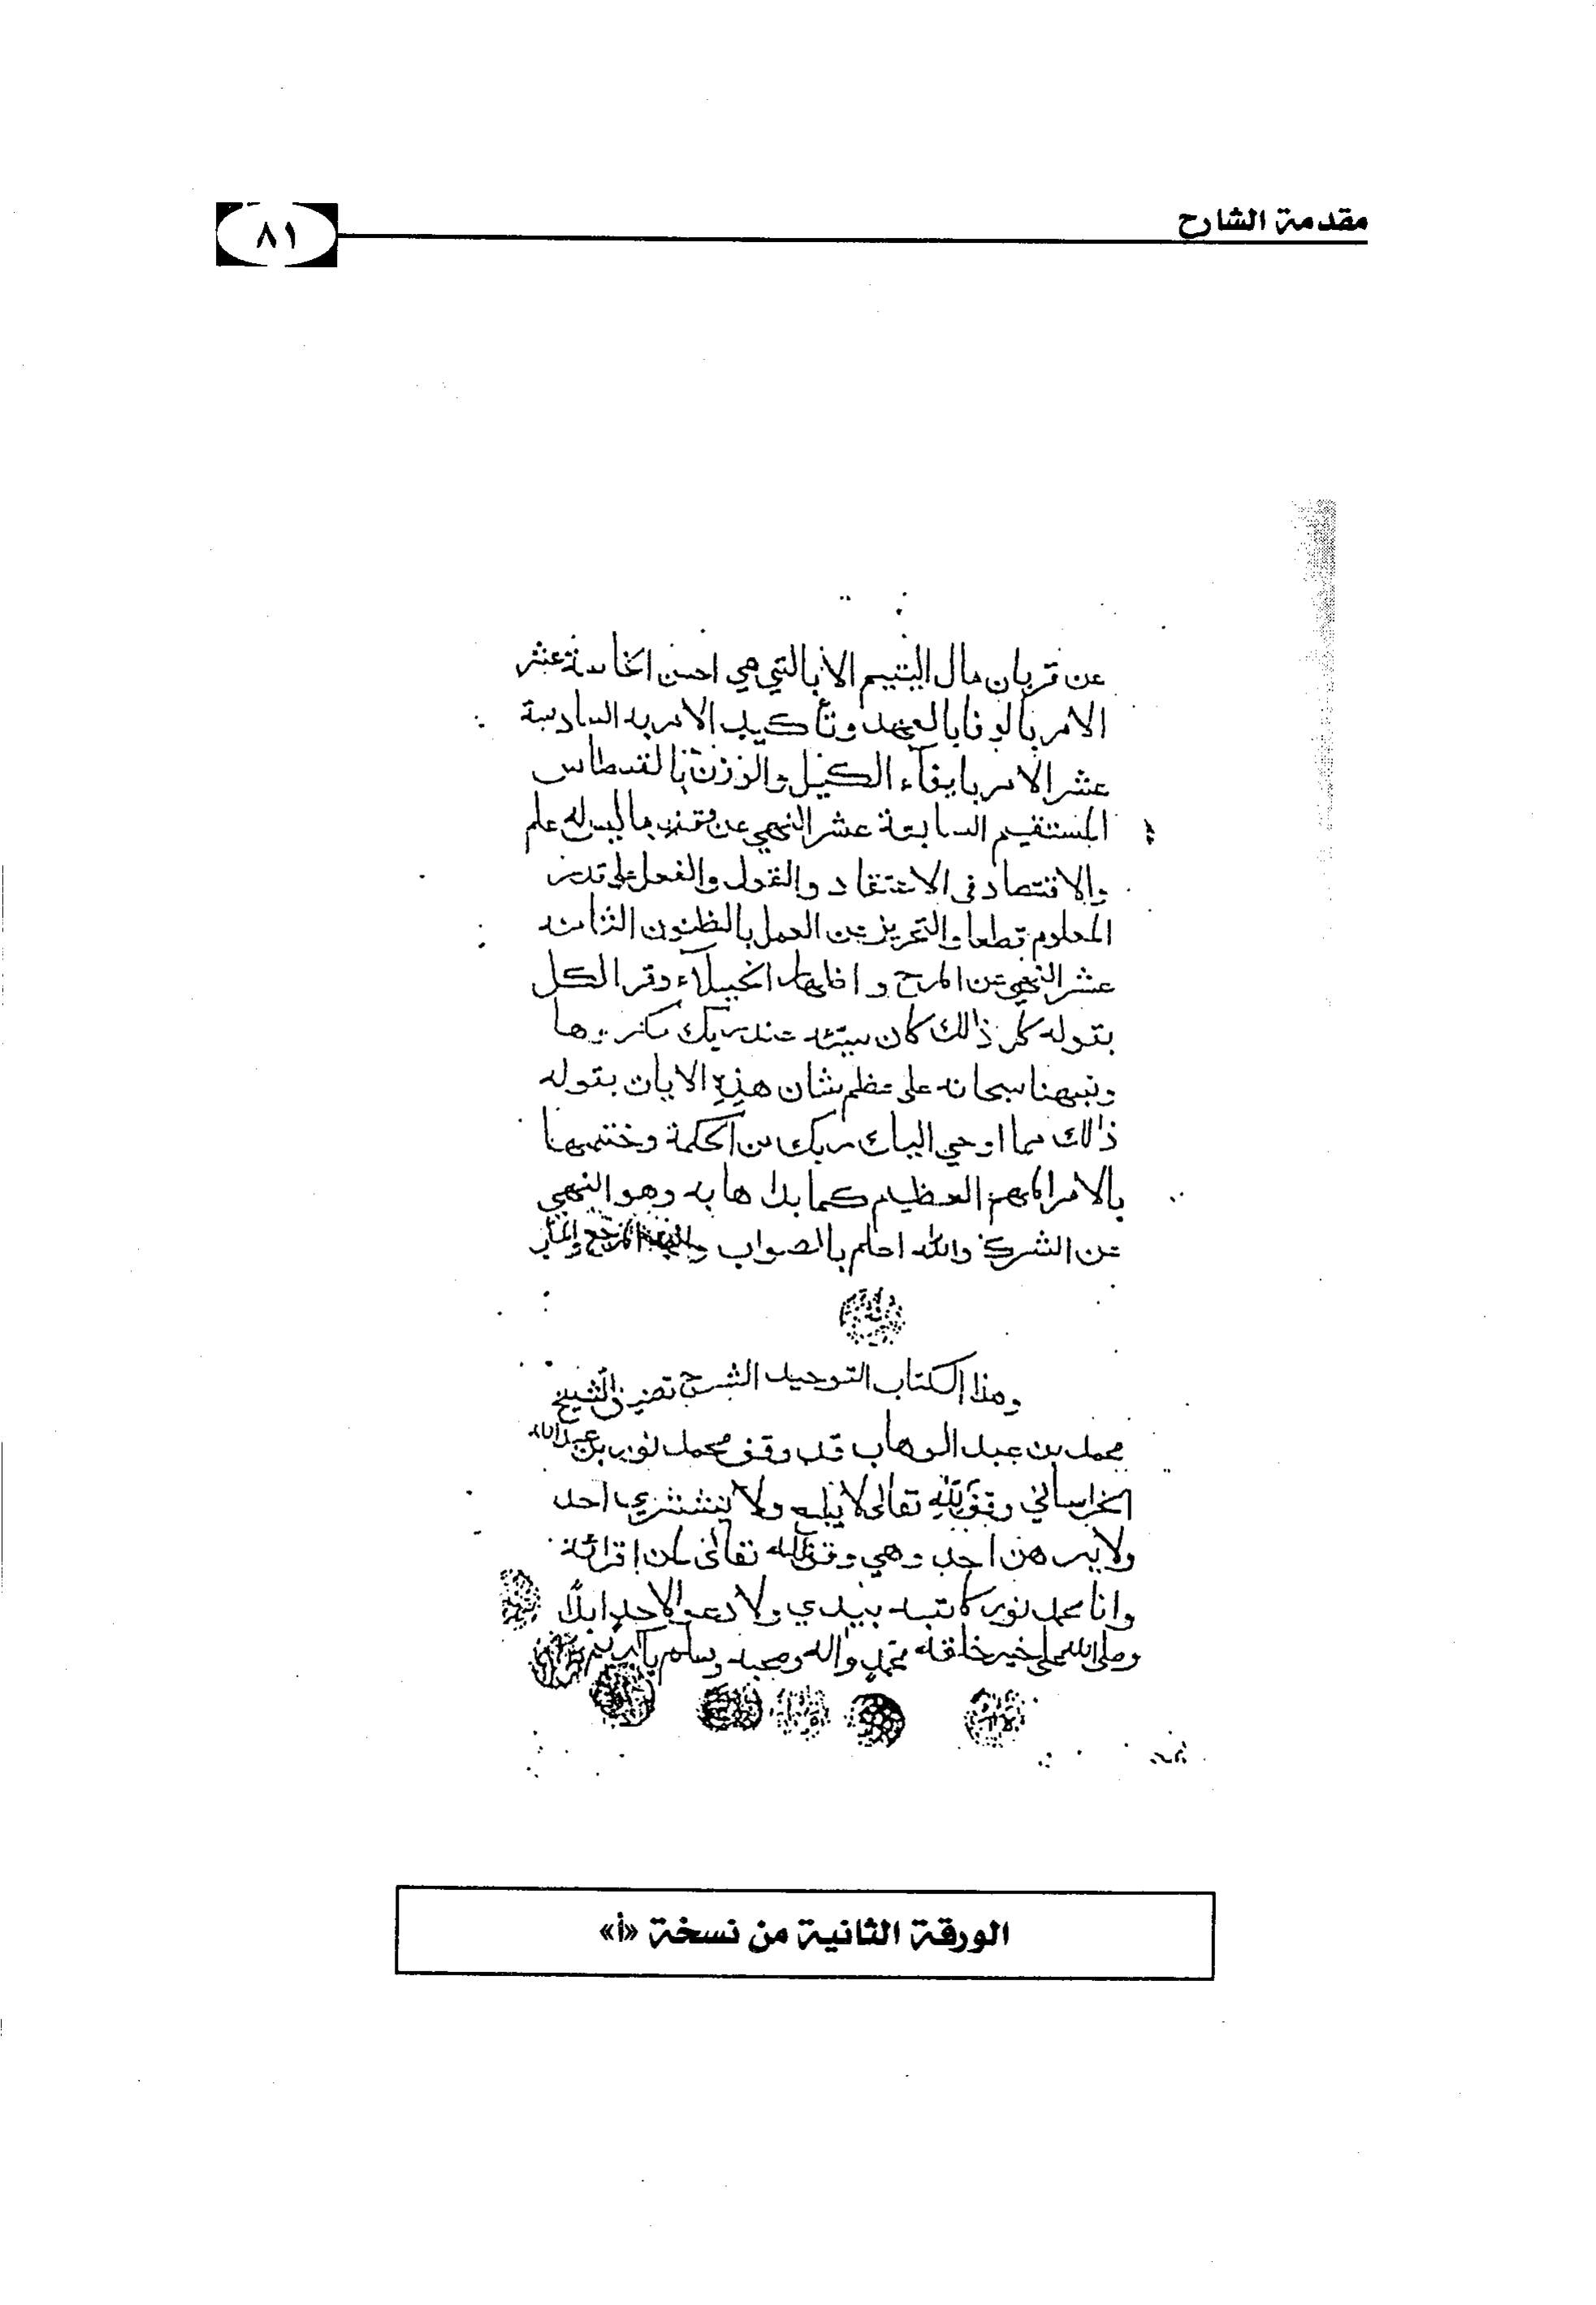 مقدمة الشارح
٨١
عن قربان مال اليتيم الا بالتي هي احسن الخامسة عشر
الامر بالوفا بالعهد وتأكيد الامر به السادسة
عشر الامر بايفآء الكيل والوزن بالقسطاس
المستقيم السابعة عشر النهي عن ما ليس له علم
والاقتصاد في الاعتقاد والقول والفعل على قدر
المعلوم قطعا والتحريز عن العمل بالظنون الثامنه
عشر النهي عن المرح و اظهار الخيلآء وقرا لكل
بقوله كل ذالك كان سيئه عند ربك مكروها
ونبهنا سبحانه على عظم شان هذه الايات بقوله
ذالك مما اوحي اليك ربك من الحكمة وختمها
بالامر المهم العظيم كما بداها به وهو النهي
عن الشرك والله اعلم بالصواب واليه المرجع والمآب
وهذا الكتاب التوحيد الشرح تصنيف الشيخ
محمد بن عبد الوهاب قد وقف محمد نور بن عبدالله
الخراساني وقف لله تعالى لا يبلع ولا يتشتري احد
ولا يرهن احد وهي وقف لله تعالى لمن اقرائة
وانا محمد نور كاتبه بيدي ولا دعوا لاحد ابدًا
وصلى الله على خير خلقه محمد واله وصحبه وسلم
الورقة الثانية من نسخة «أ»